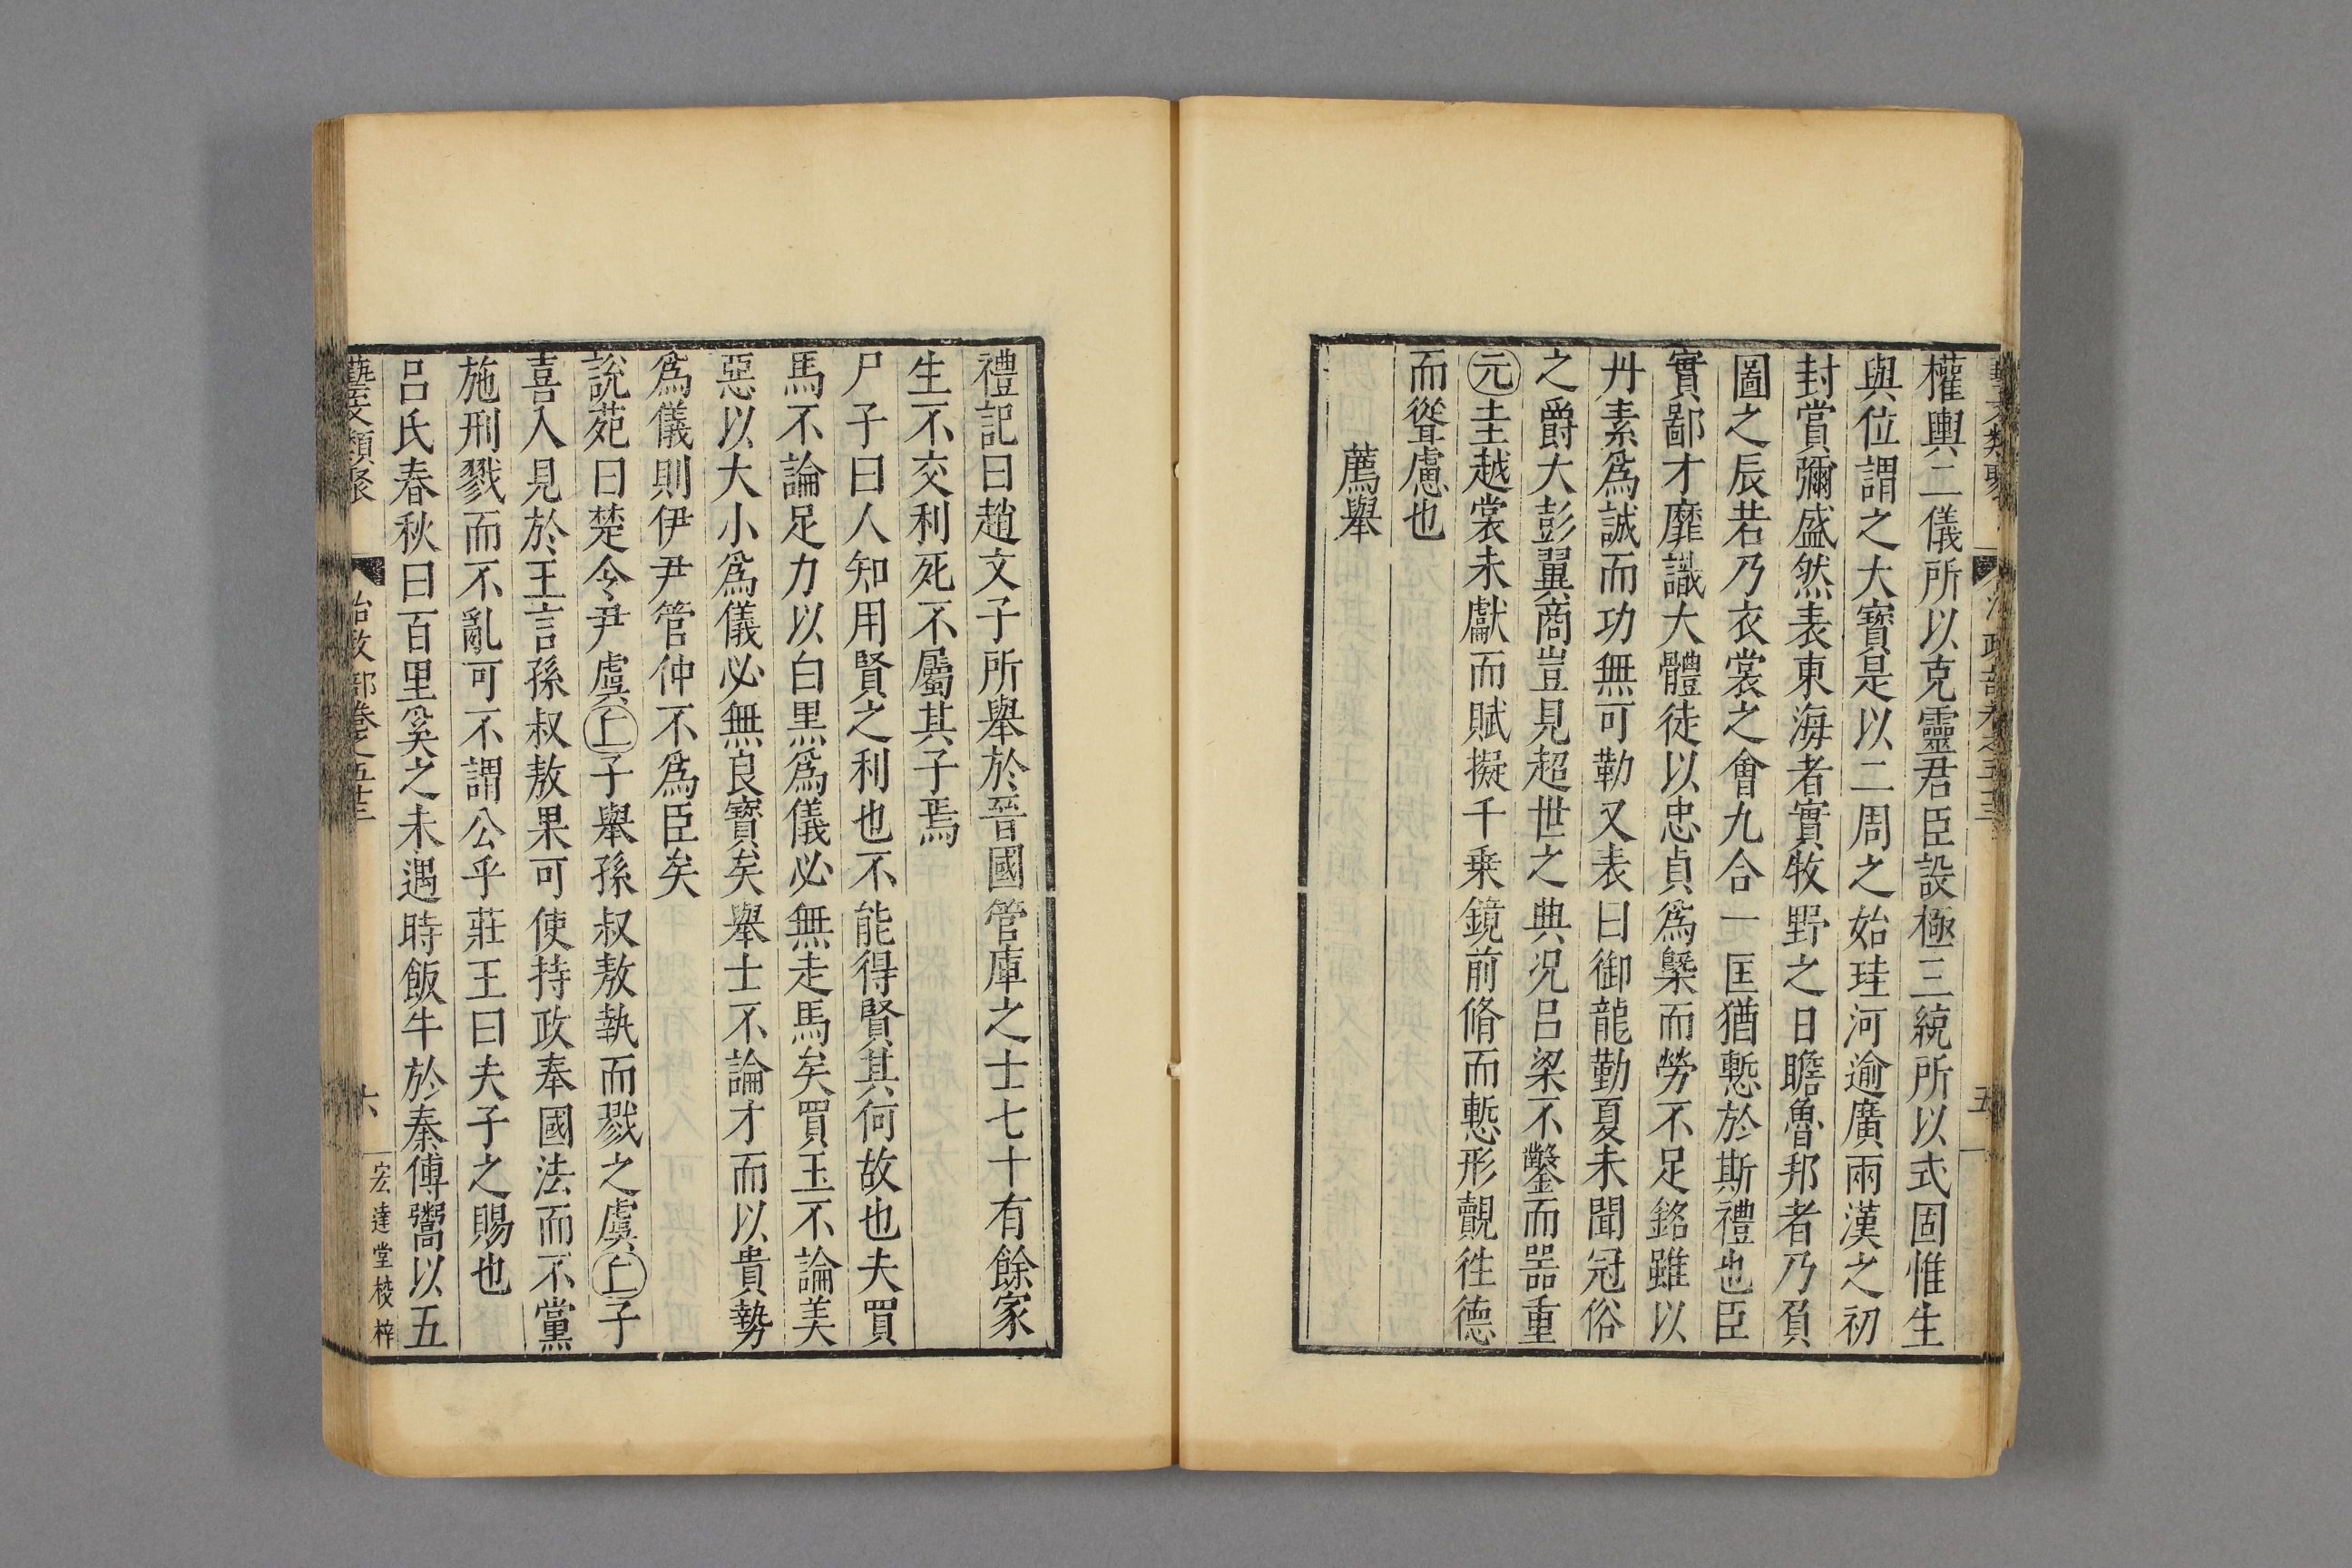 權輿二儀所以克靈君臣設極三統所以式固惟生
與位謂之大寶是以二周之始珪河逾廣兩漢之初
封賞彌盛然表東海者實牧野之日瞻魯邦者乃負
圖之辰若乃衣裳之會九合一匡猶慙於斯禮也臣
實鄙才靡識大體徒以忠貞爲槩而勞不足銘雖以
丹素爲誠而功無可勒又表曰御龍勤夏未聞冠俗
之爵大彭翼商豈見超世之典況呂梁不鑿而器重
元圭越裳未獻而賦擬千乗鏡前脩而慙形觀徃德
而聳慮也
薦舉
禮記曰趙文子所舉於晉國管庫之士七十有餘家
生不交利死不屬其子焉
尸子曰人知用賢之利也不能得賢其何故也夫買
馬不論足力以白黒爲儀必無走馬矣買玉不論美
惡以大小爲儀必無良寶矣舉士不論才而以貴勢
爲儀則伊尹管仲不爲臣矣
說苑曰楚令尹虞丘子舉孫叔敖執而戮之虞丘子
喜入見於王言孫叔敖果可使持政奉國法而不黨
施刑戮而不亂可不謂公乎莊王曰夫子之賜也
呂氏春秋曰百里奚之未遇時飯牛於秦傅鬻以五
藝文類聚 治政部卷之五十三 六 宏達堂校梓